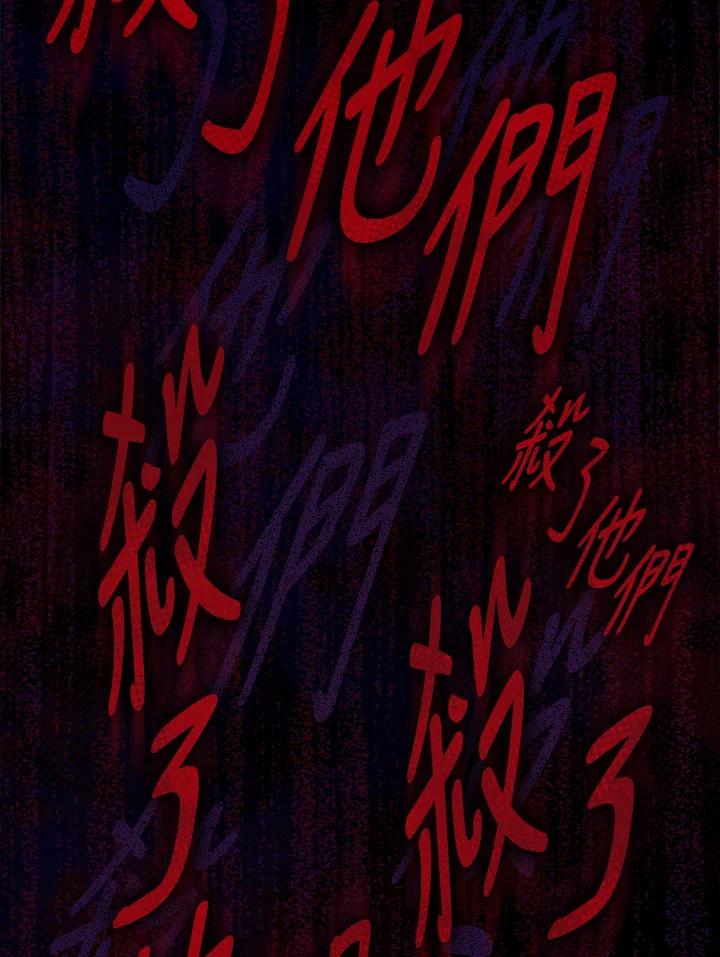 殺了他們
殺了
殺了他們
殺了
他們
們